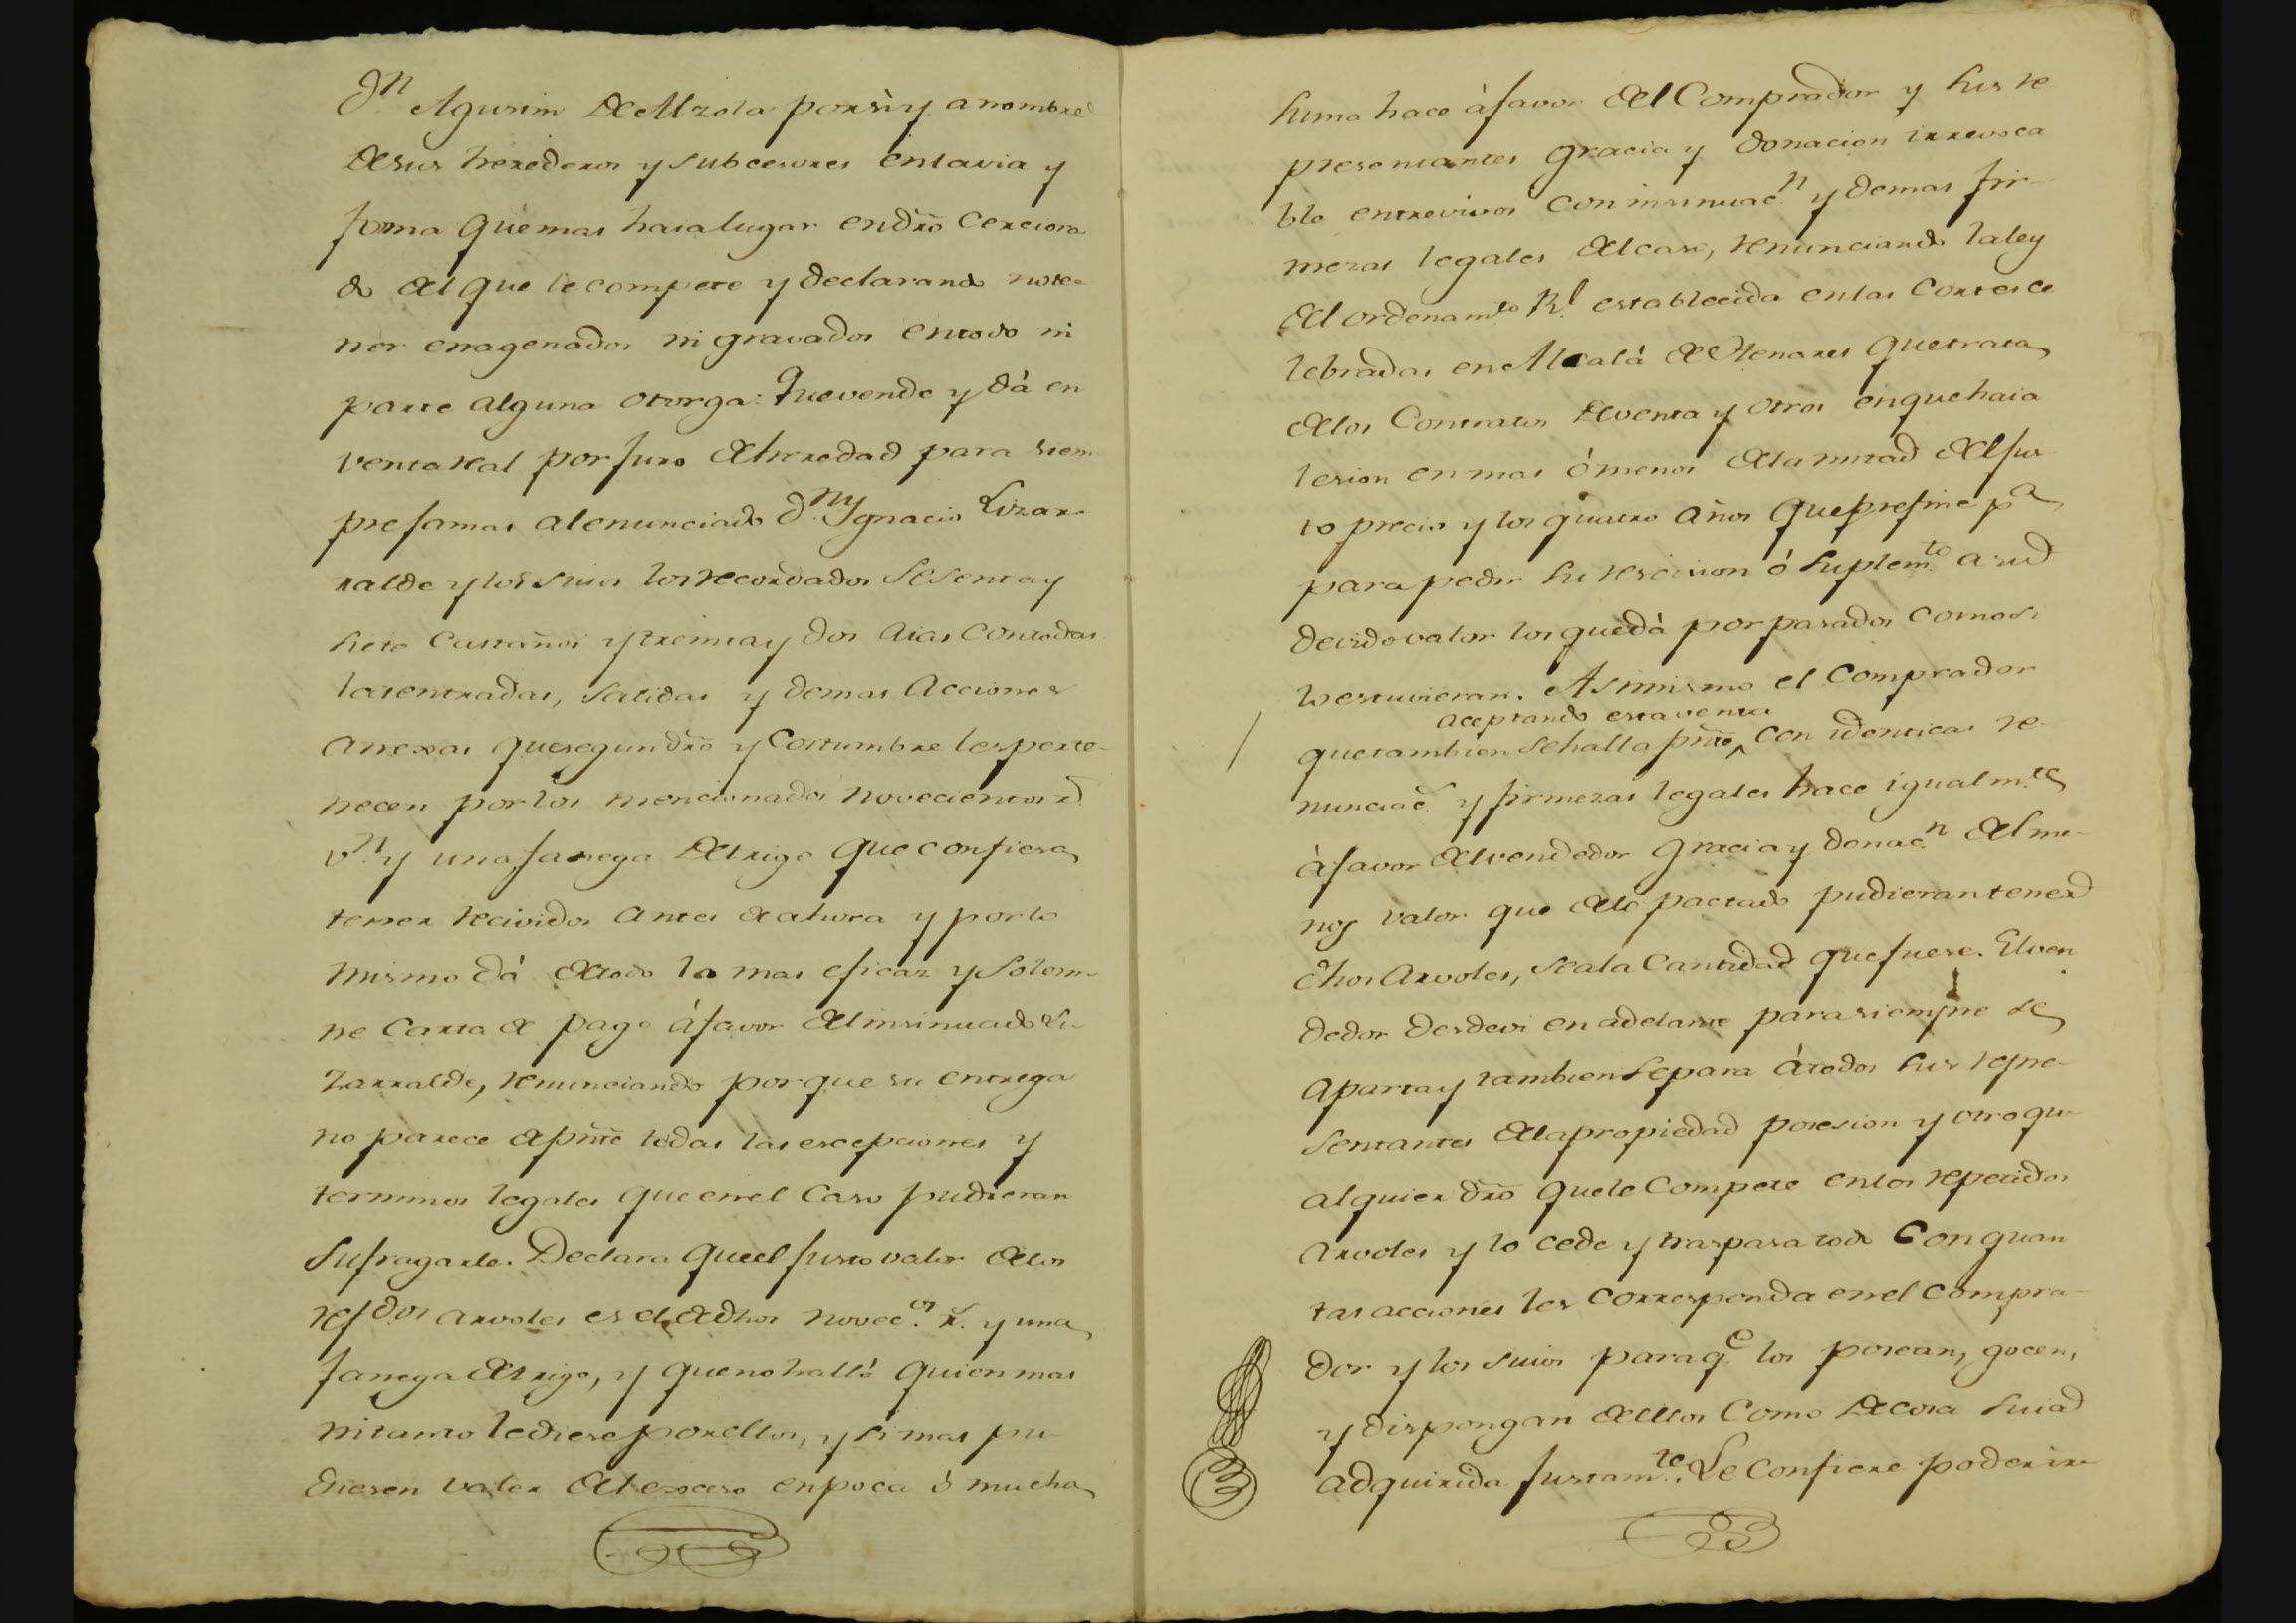 Dn Agustin de Alzola por sì y a nombre
de sus herederos y subcesores en la via y
forma que mas haia lugar en dro cerciora
do del que le compete y declarando no te-
ner enagenados ni gravados en todo ni
parte alguna otorga: Que vende y dà en
venta real por juro de heredad para siem-
pre jamas al enunciado Dn Ygnacio Lizar-
ralde y los suios los recordados sesenta y
siete castaños y treinta y dos aias con todas
las entradas, salidas y demas acciones
anexas que segun dro y costumbre les perte-
necen por los mencionados novecientos rs
vn y una fanega de trigo que confiesa
tener recividos antes de ahora y por lo
mismo dá de todo la mas eficaz y solem-
ne carta de pago á favor del insinuado Li-
zarralde, renunciando por que su entrega
no parece de pnte todas las escepciones y
terminos legales que en el caso pudieran
sufragarle. Declara que el justo valor de los
refdos arvoles es el de dhos novecos rs. y una
fanega de trigo, y que no halló quien mas
ni tanto le diese por ellos, y si mas pu-
diesen valer del exceso en poca ó mucha
suma hace à favor del comprador y sus re
presentantes gracia y donacion irrevoca
ble entrevivos con insinuacn y demas fir-
mezas legales del caso, renunciando la ley
del ordenamto Rl establecida en las Cortes ce
lebradas en Alcalá de Henares que trata
de los contratos de venta y otros en que haia
lesion en mas ó menos de la mitad del jus-
to precio y los quatro años que prefine pa
para pedir su rescision ó suplemto a su
devido valor los que dà por pasados como si
lo estuvieran. Asimismo el comprador
aceptando esta venta
que tambien se halla pnte, con identicas re-
nunciacs y firmezas legales hace igualmte
à favor del vendedor gracia y donacn del me-
nos valor que de lo pactado pudieran tener
dhos arvoles, sea la cantidad que fuere. El ven
dedor desde oi en adelante para siempre se
aparta y tambien separa á todos sus repre-
sentantes de la propiedad posesion y otro qu-
alquier dro que le compete en los repetidos
arvoles y lo cede y traspasa todo con quan
tas acciones les corresponda en el compra-
dor y los suios para qe los posean, gocen,
y dispongan de ellos como de cosa suia
adquirida justamte. Le confiere poder ir-